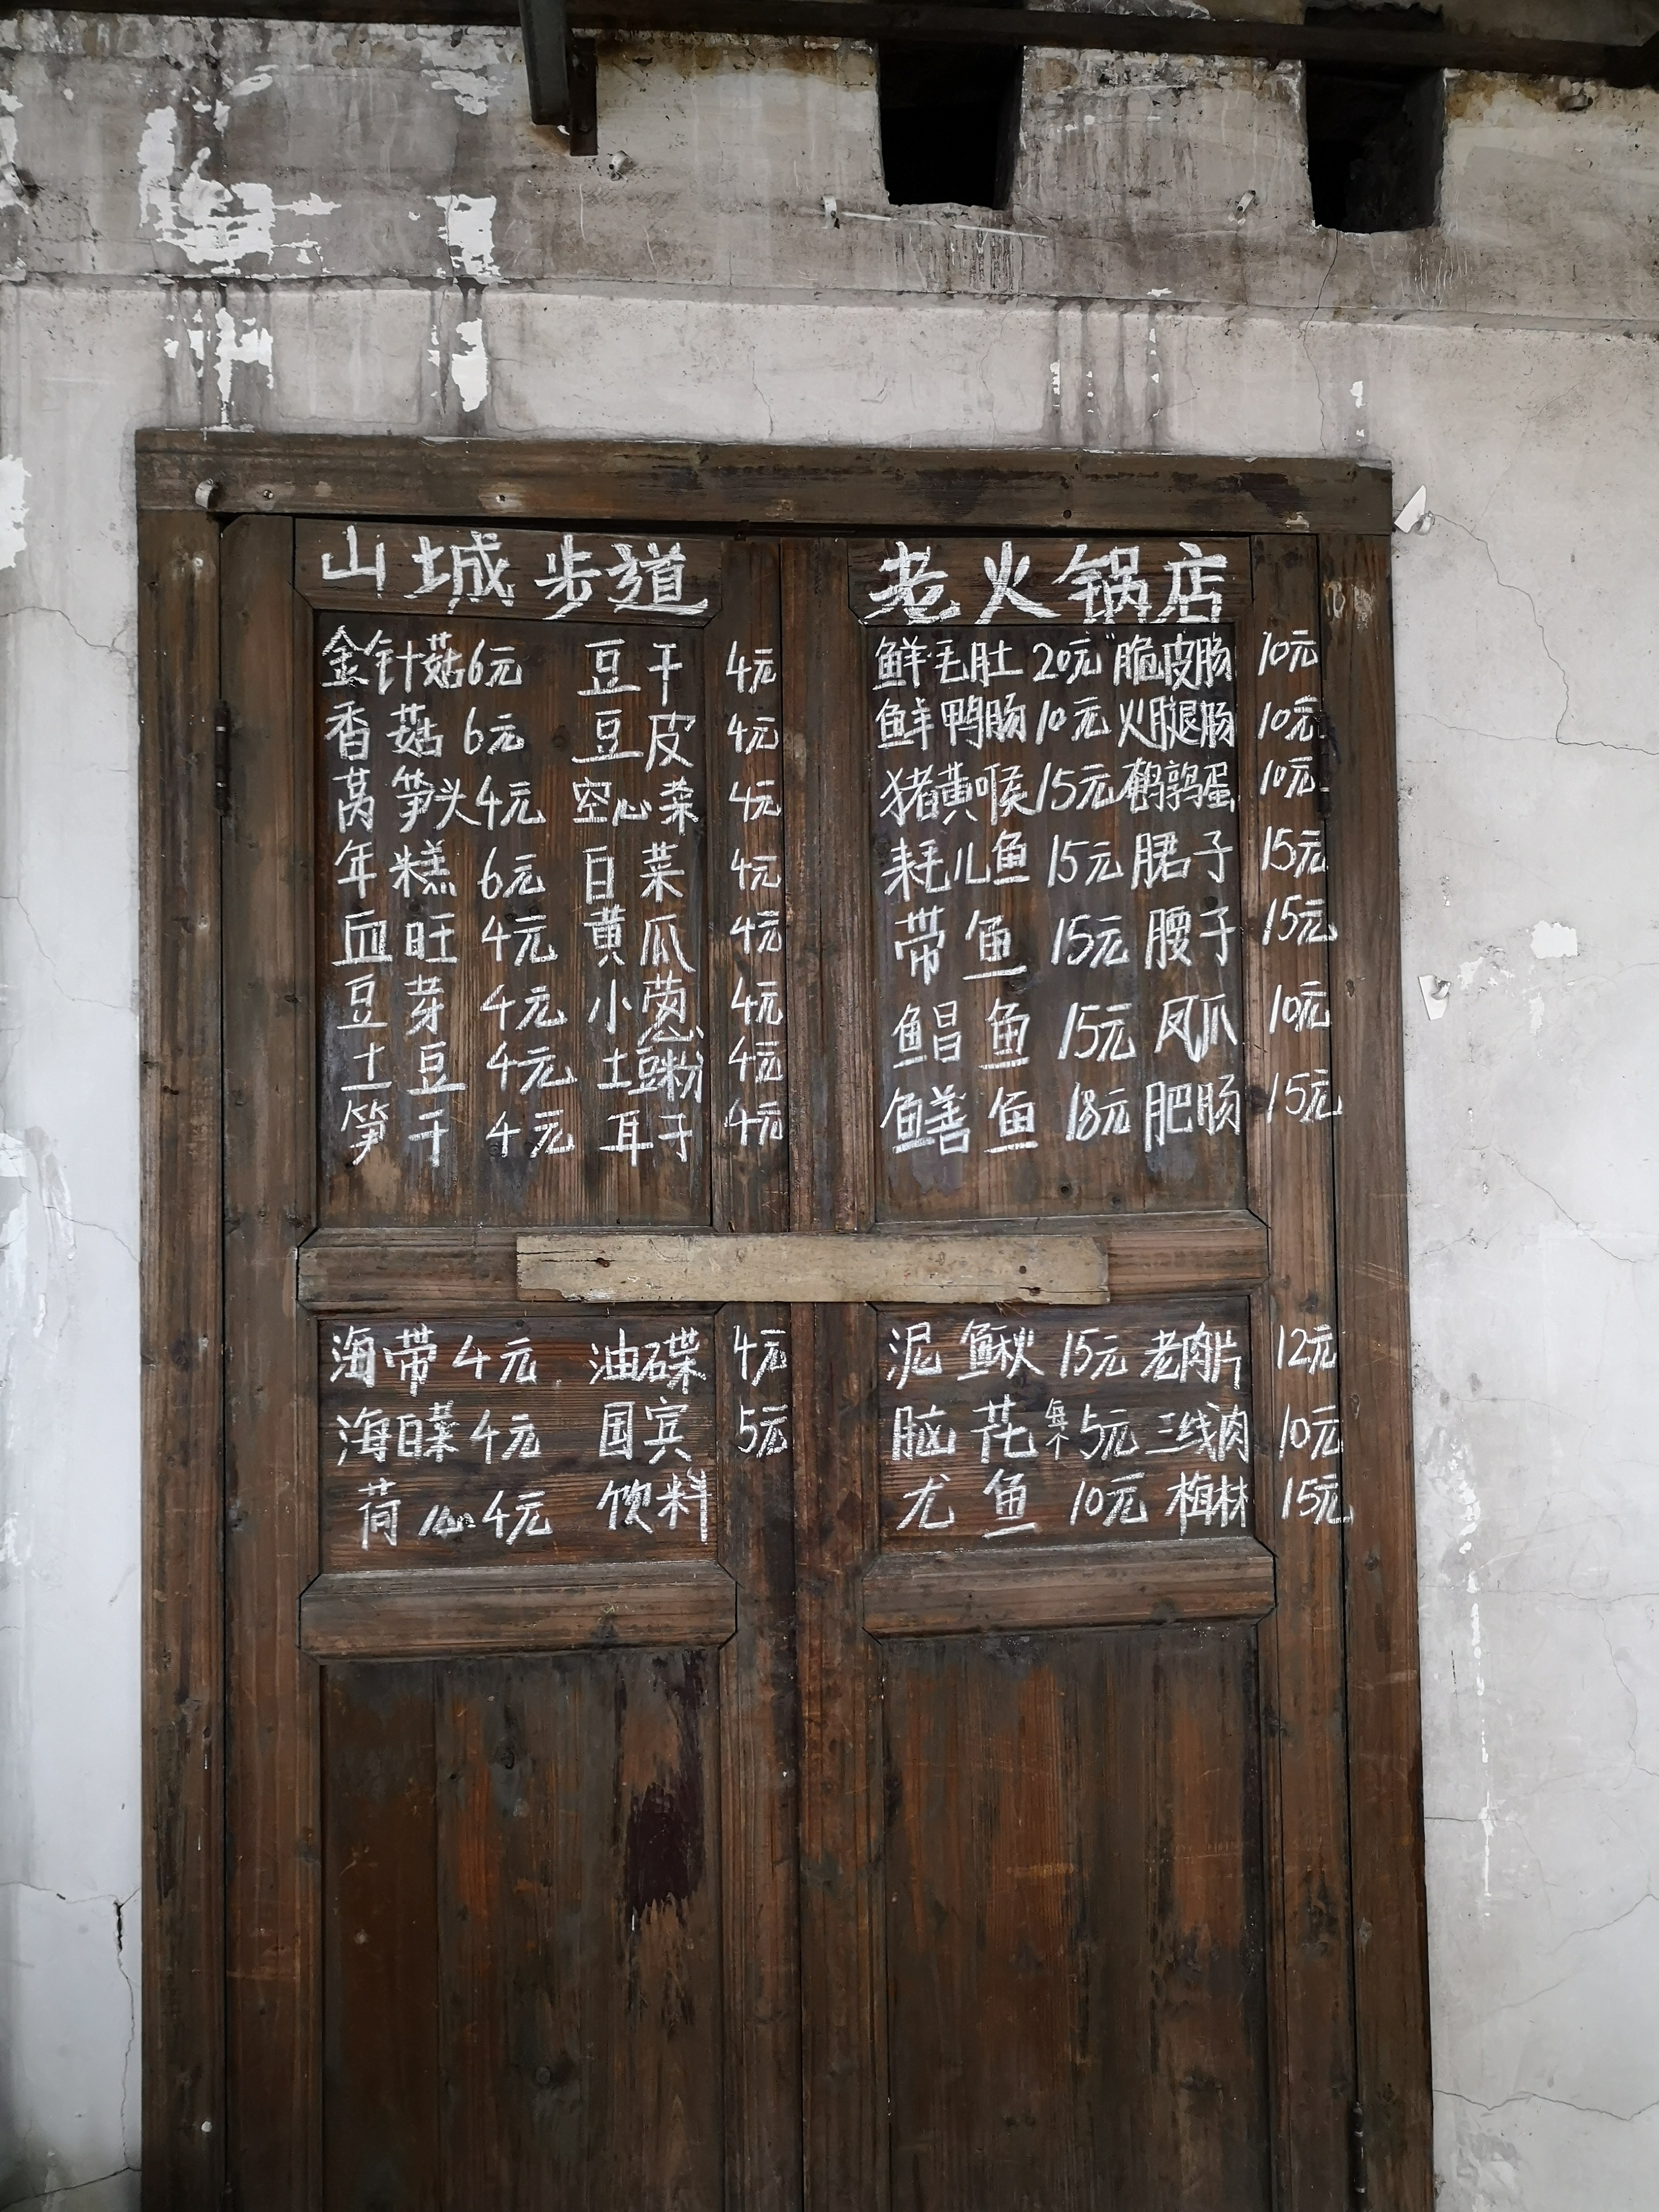 山城步道 老火锅店
金针菇 6元 豆干 4元
香菇 6元 豆皮 4元
莴笋头 4元 空心菜 4元
年糕 6元 白菜 4元
血旺 4元 黄瓜 4元
豆芽 4元 小葱 4元
土豆 4元 土豆粉 4元
笋干 4元 耳子 4元
海带 4元 油碟 4元
海白菜 4元 国宾 5元
荷心 4元 饮料
鲜毛肚 20元 脆皮肠 10元
鲜鸭肠 10元 火腿肠 10元
猪黄喉 15元 鹌鹑蛋 10元
耗儿鱼 15元 䐃子 15元
带鱼 15元 腰子 15元
鲳鱼 15元 凤爪 10元
鳝鱼 18元 肥肠 15元
泥鳅 15元 老肉片 12元
脑花 每个5元 三线肉 10元
尤鱼 10元 梅林 15元